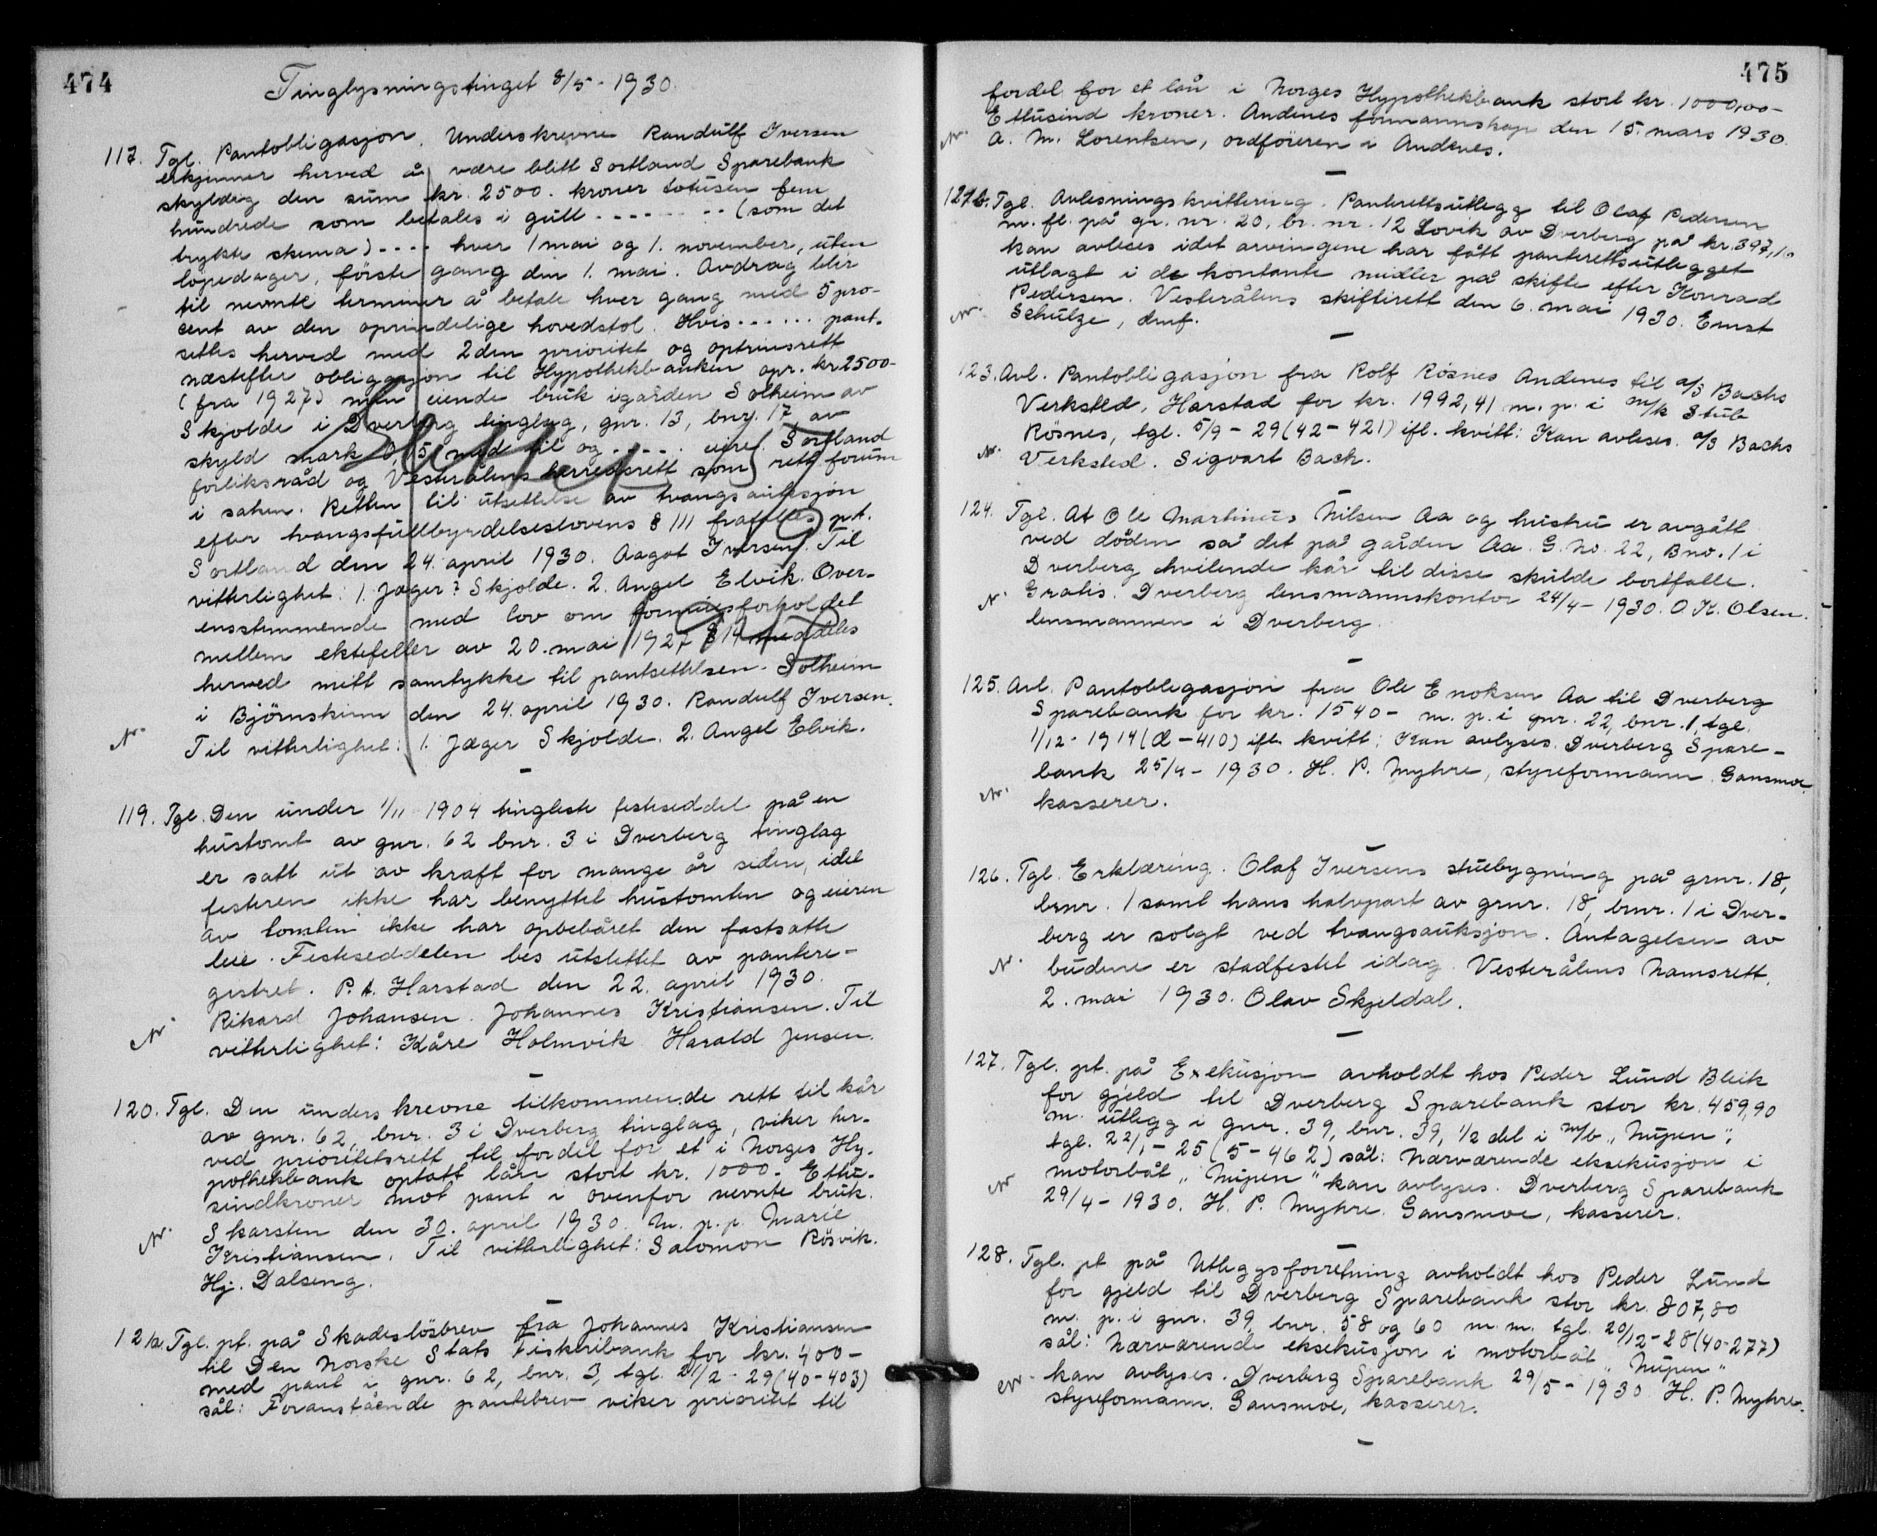 474
Tinglysningstinget 8/5 - 1930.
117. Tgl. Pantobligasjon. Underskrevne Randulf Iversen
erkjenner herved å være blitt Sortland Sparebank
skyldig den sum kr. 2500. kroner totusen fem
hundrede som betales i gull - - - - - - - - (som det
trykte skema) - - - - hver 1 mai og 1. november, uten
löpedager, förste gang den 1. mai. Avdrag blir
til nevnte terminer å betale hver gang med 5 pro-
cent av den oprindelige hovedstol. Hvis - - - - - - pant-
settes herved med 2den prioritet og optrinsrett
næstefter obligasjon til Hypothekbanken opr. kr 2500-
(fra 1927) min eiende bruk i gården Solheim av
Skjolde i Dverberg tinglag, gnr. 13, bnr. 17 av
skyld mark 0,15 med til og . . . . . eiret. Sortland
forliksråd og Vesterålens herredsrett som rett forum
i saken. Retten til utsettelse av tvangsauksjon
efter tvangsfullbyrdelseslovens § 111 frafalles p.t.
Sortland den 24. april 1930. Aagot Iversen. Til
vitterlighet: 1. Jæger? Skjolde. 2. Angel Elvik. Over-
ensstemmende med lov om formuesforholdet
mellem ektefeller av 20. mai 1927 § 14 meddeles
herved mitt samtykke til pantsettelsen. Solheim
i Björnskinn den 24. april 1930. Randulf Iversen.
Til vitterlighet: 1. Jæger Skjolde. 2. Angel Elvik.
119. Tgl. Den under 1/11 1904 tingleste festeseddel på en
hustomt av gnr. 62 bnr. 3 i Dverberg tinglag
er satt ut av kraft for mange år siden, idet
festeren ikke har benyttet hustomten og eieren
av tomten ikke har opbebåret den fastsatte
leie. Festeseddelen bes utslettet av pantere-
gistret. P.t. Harstad den 22. april 1930.
Rikard Johansen. Johannes Kristiansen. Til
vitterlighet: Kåre Holmvik Harald Jensen.
120. Tgl. Den underskrevne tilkommende rett til kår
av gnr. 62, bnr. 3 i Dverberg tinglag, viker her-
ved prioritetsrett til fordel for et i Norges Hy-
pothekbank optatt lån stort kr. 1000.- Ettu-
sindkroner mot pant i ovenfor nevnte bruk.
Skarsten den 30. april 1930. M. p. p. Marie
Kristiansen. Til vitterlighet: Salomon Rösvik.
Hj. Dalseng.
121a. Tgl. pt. på Skadeslösbrev fra Johannes Kristiansen
til Den Norske Stats Fiskeribank for kr. 400-
med pant i gnr. 62, bnr. 3, tgl. 21/2 - 29 (40-403)
sål: Foranstående pantebrev viker prioritet til
475
fordel for et lån i Norges Hypothekbank stort kr. 1000,00-
Ettusind kroner. Andenes formannskap den 15. mars 1930.
A. M. Lorentsen, ordföreren i Andenes.
121b. Tgl. Avlesningskvittering. Panterettsutlegg til Olaf Pedersen
m. fl. på gr. nr. 20, br. nr. 12 Lovik av Dverberg på kr. 397,10
kan avleses idet arvingene har fått panterettsutlegget
utlagt i de kontante midler på skifte efter Konrad
Pedersen. Vesterålens skifterett den 6. mai 1930. Ernst
Schulze, dmf.
123. Avl. Pantobligasjon fra Rolf Rösnes Andenes til A/S Bachs
Verksted, Harstad for kr. 1992,41 m. p. i m/k Stub
Rösnes, tgl. 5/9 - 29 (42-421) ifl. kvitt: Kan avleses. A/S Bachs
Verksted. Sigvart Bach.
124. Tgl. At Ole Martinus Nilsen Aa og hustru er avgått
ved döden så det på gården Aa G. No. 22, Bno. 1 i
Dverberg hvilende kår til disse skulde bortfalle.
Gratis. Dverberg lensmannskontor 24/4 - 1930. O. K. Olsen.
lensmannen i Dverberg.
125. Avl. Pantobligasjon fra Ole Enoksen Aa til Dverberg
Sparebank for kr. 1540- m. p. i gnr. 22, bnr. 1, tgl.
1/12 - 1914 (d-410) ifl. kvitt: Kan avlyses. Dverberg Spare-
bank 25/4 - 1930. H. P. Myhre, styreformann. Gansmoe,
kasserer.
126. Tgl. Erklæring. Olaf Iversens stuebygning på grnr. 18,
brnr. 1 samt hans halvpart av grnr. 18, brnr. 1 i Dver-
berg er solgt ved tvangsauksjon. Antagelsen av
budene er stadfestet idag. Vesterålens namsrett,
2. mai 1930. Olav Skjeldal.
127. Tgl. pt. på Exekusjon avholdt hos Peder Lund Bleik
for gjeld til Dverberg Sparebank stor kr. 459,90
m. utlegg i gnr. 39, bnr. 39, 1/2 del i m/b "Nupen",
tgl. 22/1 - 25 (5-462) sål: Nærværende eksekusjon i
motorbåt "Nupen" kan avlyses. Dverberg Sparebank
29/4 - 1930. H. P. Myhre. Gansmoe, kasserer.
128. Tgl. pt på Utleggsforretning avholdt hos Peder Lund
for gjeld til Dverberg Sparebank stor kr. 807,80
m. p. i gnr. 39, bnr. 58 og 60 m. m. tgl. 20/12 - 28 (40-277)
sål: Nærværende eksekusjon i motorbåt "Nupen"
kan avlyses. Dverberg Sparebank 29/5 - 1930. H. P. Myhre.
styreformann. Gansmoe, kasserer.